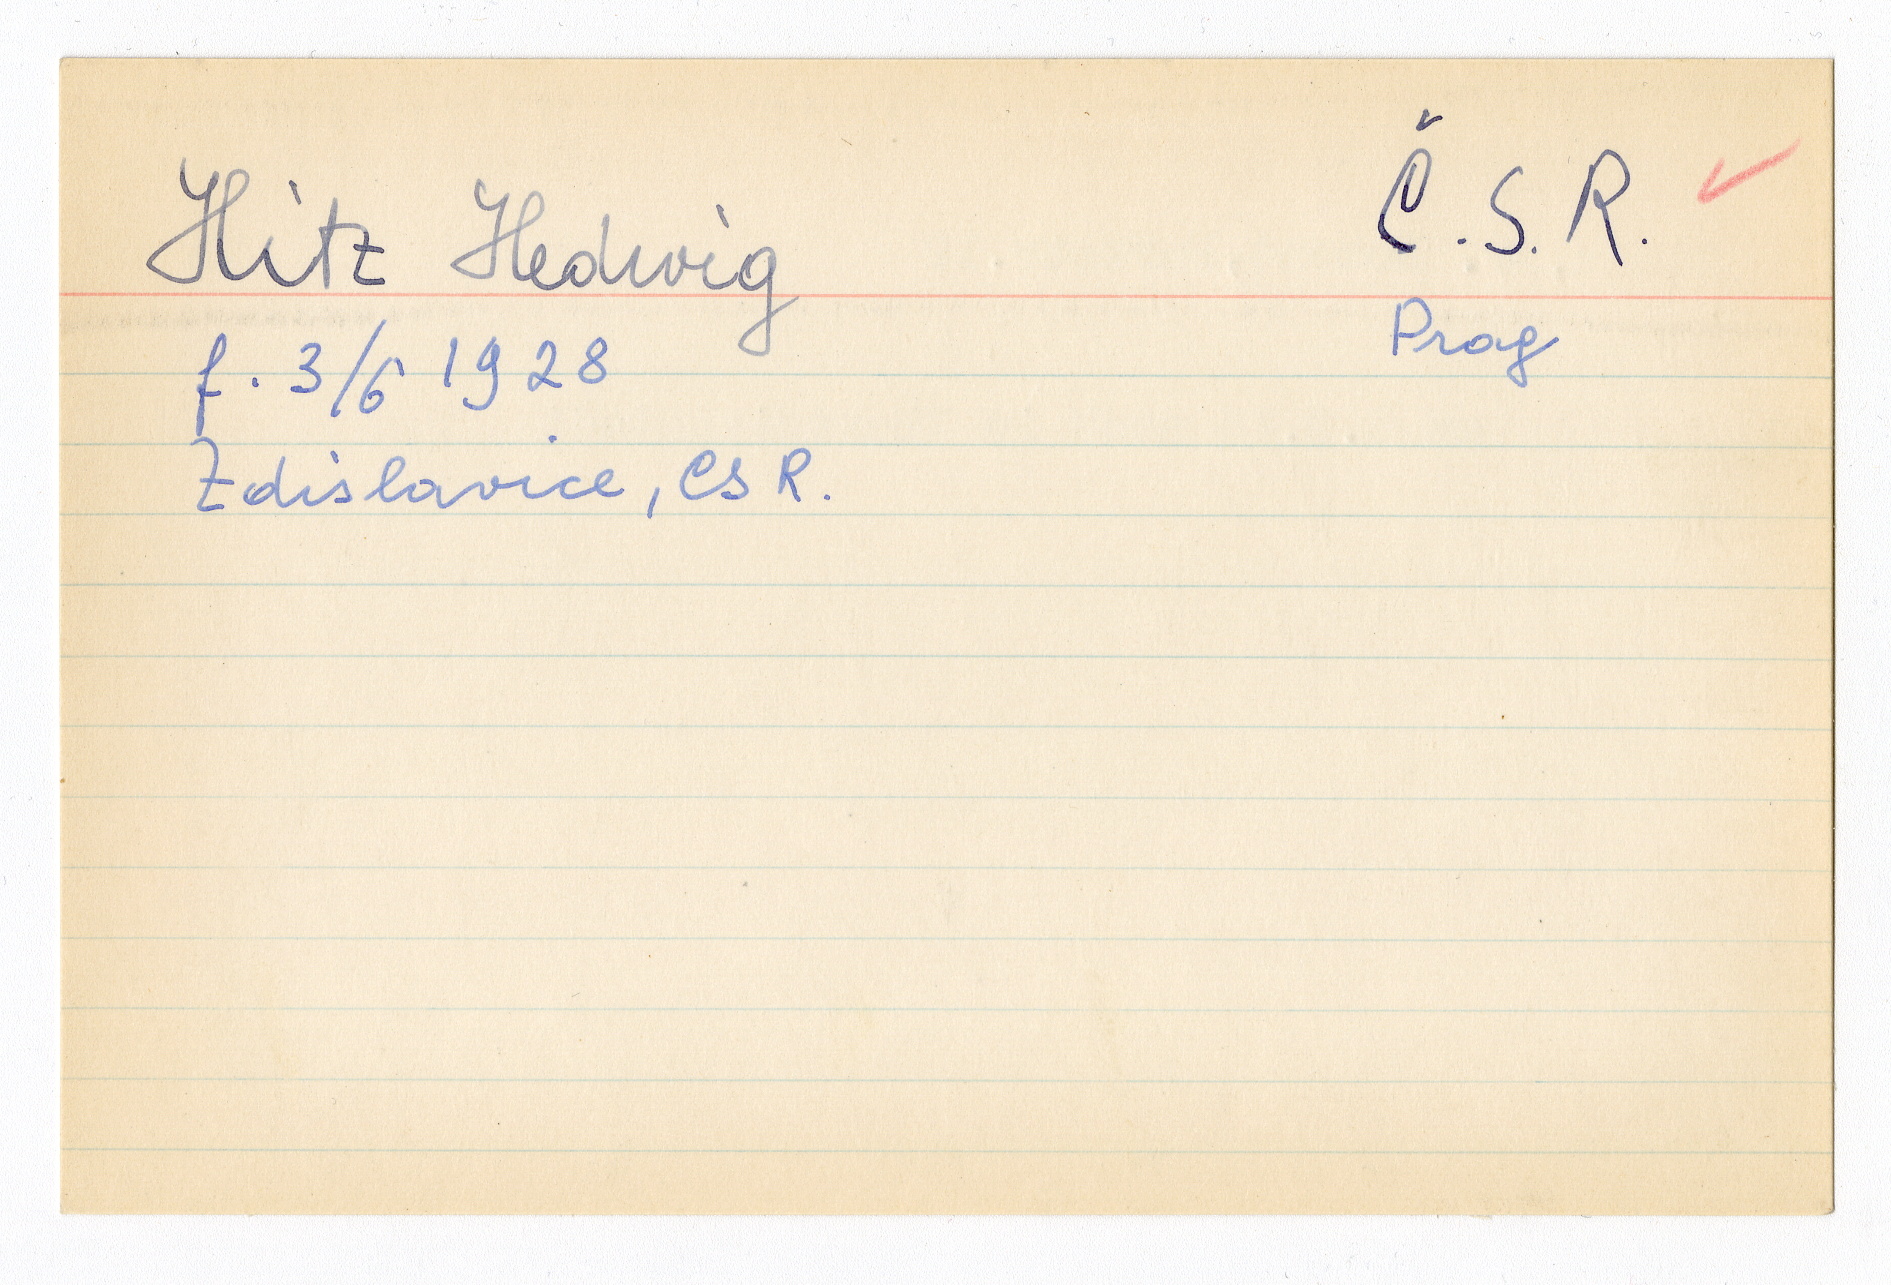 Hitz Hedwig Č.S.R.
Prag
f. 3/6 1928
Zdislavice, CSR.